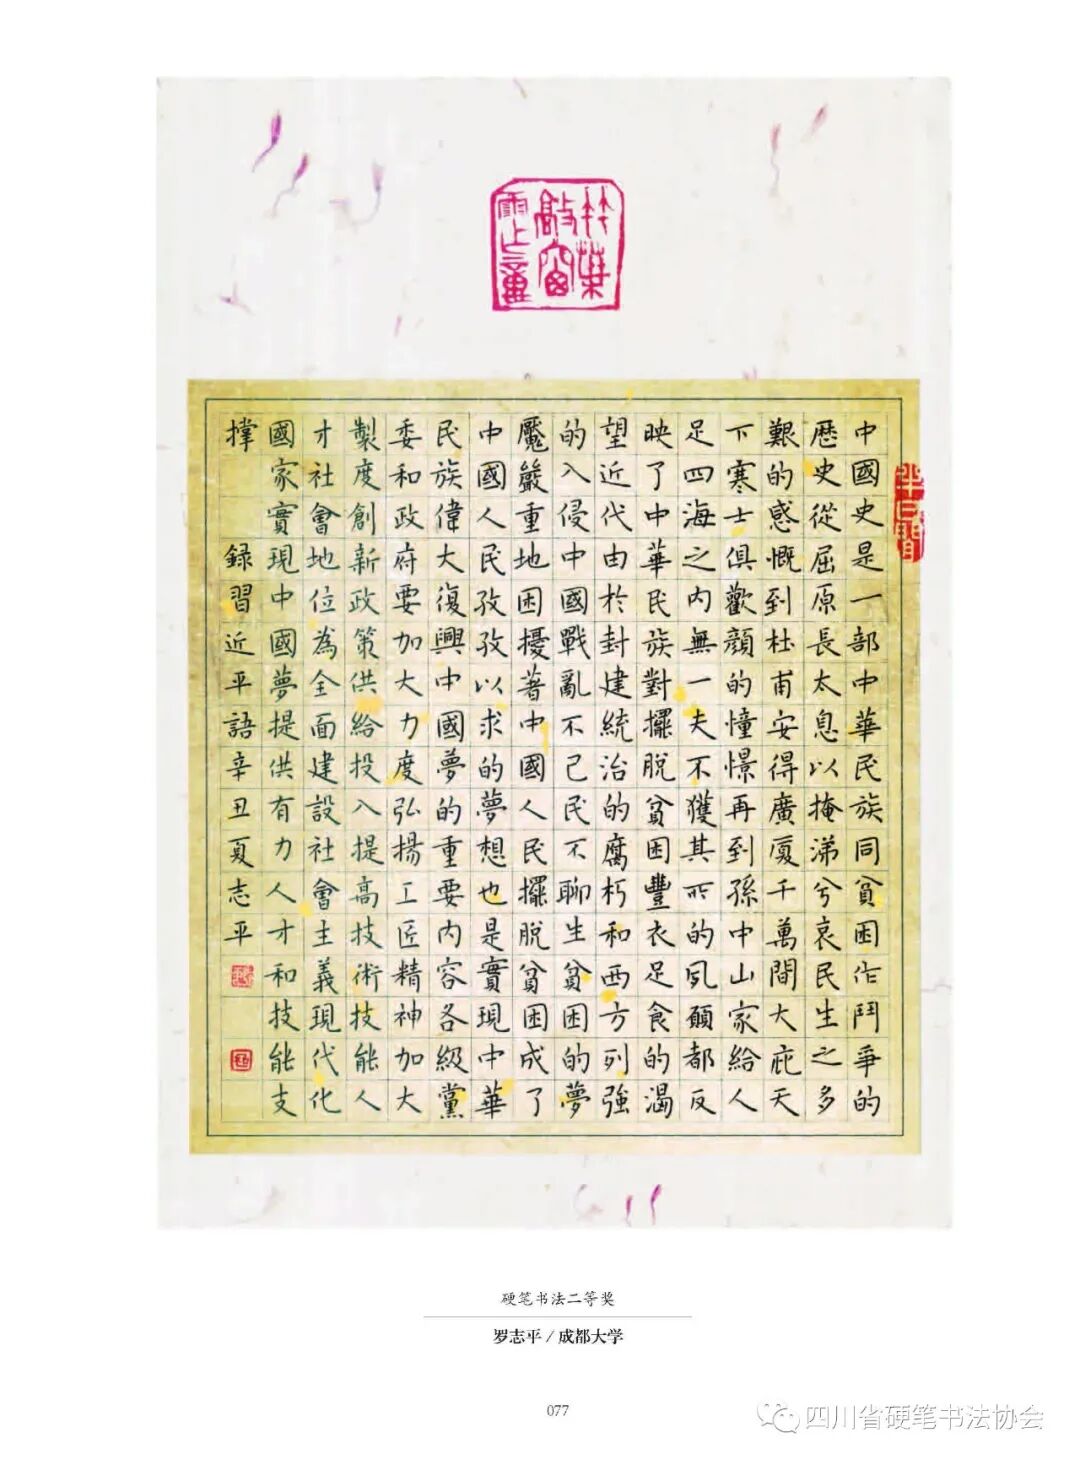 竹葉
敲窗
半日閒
中國史是一部中華民族同貧困作鬥爭的
歷史從屈原長太息以掩涕兮哀民生之多
艱的感慨到杜甫安得廣廈千萬間大庇天
下寒士俱歡顏的憧憬再到孫中山家給人
足四海之內無一夫不獲其所的夙願都反
映了中華民族對擺脫貧困豐衣足食的渴
望近代由於封建統治的腐朽和西方列強
的入侵中國戰亂不已民不聊生貧困的夢
魘嚴重地困擾著中國人民擺脫貧困成了
中國人民孜孜以求的夢想也是實現中華
民族偉大復興中國夢的重要內容各級黨
委和政府要加大力度弘揚工匠精神加大
製度創新政策供給投入提高技術技能人
才社會地位為全面建設社會主義現代化
國家實現中國夢提供有力人才和技能支
撐 録習近平語辛丑夏志平
硬笔书法二等奖
罗志平 / 成都大学
077
四川省硬笔书法协会